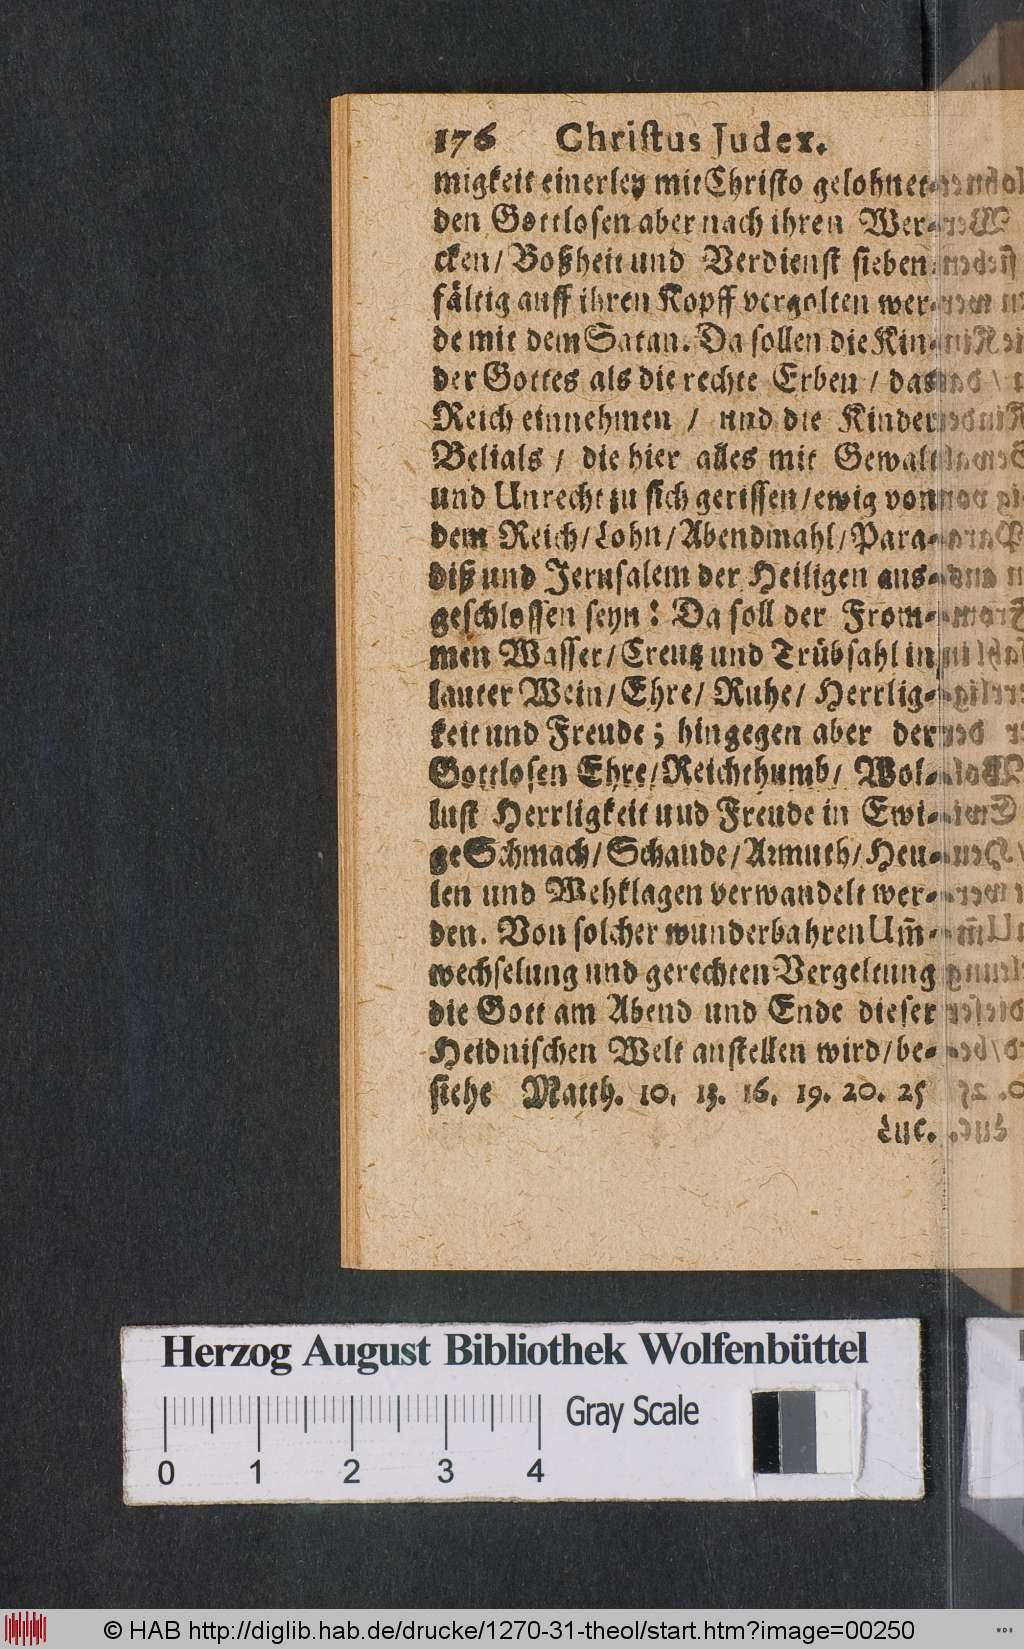 176 Christus Judex.
migkeit einerley mit Christo gelohnet-
den Gottlosen aber nach ihren Wer-
cken / Boßheit und Verdienst sieben
fältig auff ihren Kopff vergolten wer-
de mit dem Satan. Da sollen die Kin-
der Gottes als die rechte Erben / das
Reich einnehmen / und die Kinder
Belials / die hier alles mit Gewalt
und Unrecht zu sich gerissen / ewig von
dem Reich / Lohn / Abendmahl / Para-
diß und Jerusalem der Heiligen aus-
geschlossen seyn: Da soll der From-
men Wasser / Creutz und Trübsahl in
lauter Wein / Ehre / Ruhe / Herrlig-
keit und Freude; hingegen aber der
Gottlosen Ehre / Reichthumb / Wol-
lust Herrligkeit und Freude in Ewi-
ge Schmach / Schande / Armuth / Heu-
len und Wehklagen verwandelt wer-
den. Von solcher wunderbahren Um̃-
wechselung und gerechten Vergeltung
die Gott am Abend und Ende dieser
Heidnischen Welt anstellen wird / be-
siehe Matth. 10. 13. 16. 19. 20. 25
Luc.
Herzog August Bibliothek Wolfenbüttel
Gray Scale
0 1 2 3 4
© HAB http://diglib.hab.de/drucke/1270-31-theol/start.htm?image=00250